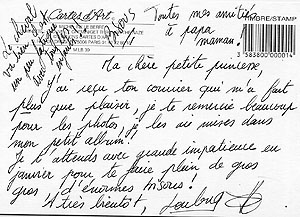 Cartes d'Art
Toutes mes amitiés
à papa
maman!
TIMBRE/STAMP
3 383800 000014
MLB 39
Ma chère petite princesse,
ai reçu ton courrier qui m'a fait
plus que plaisir, je te remercie beaucoup
pour les photos, je les ai mises dans
mon petit album!
Je t'attends avec grande impatience en
janvier pour te faire plein de gros
gros d'énormes bisous!
A très bientôt,